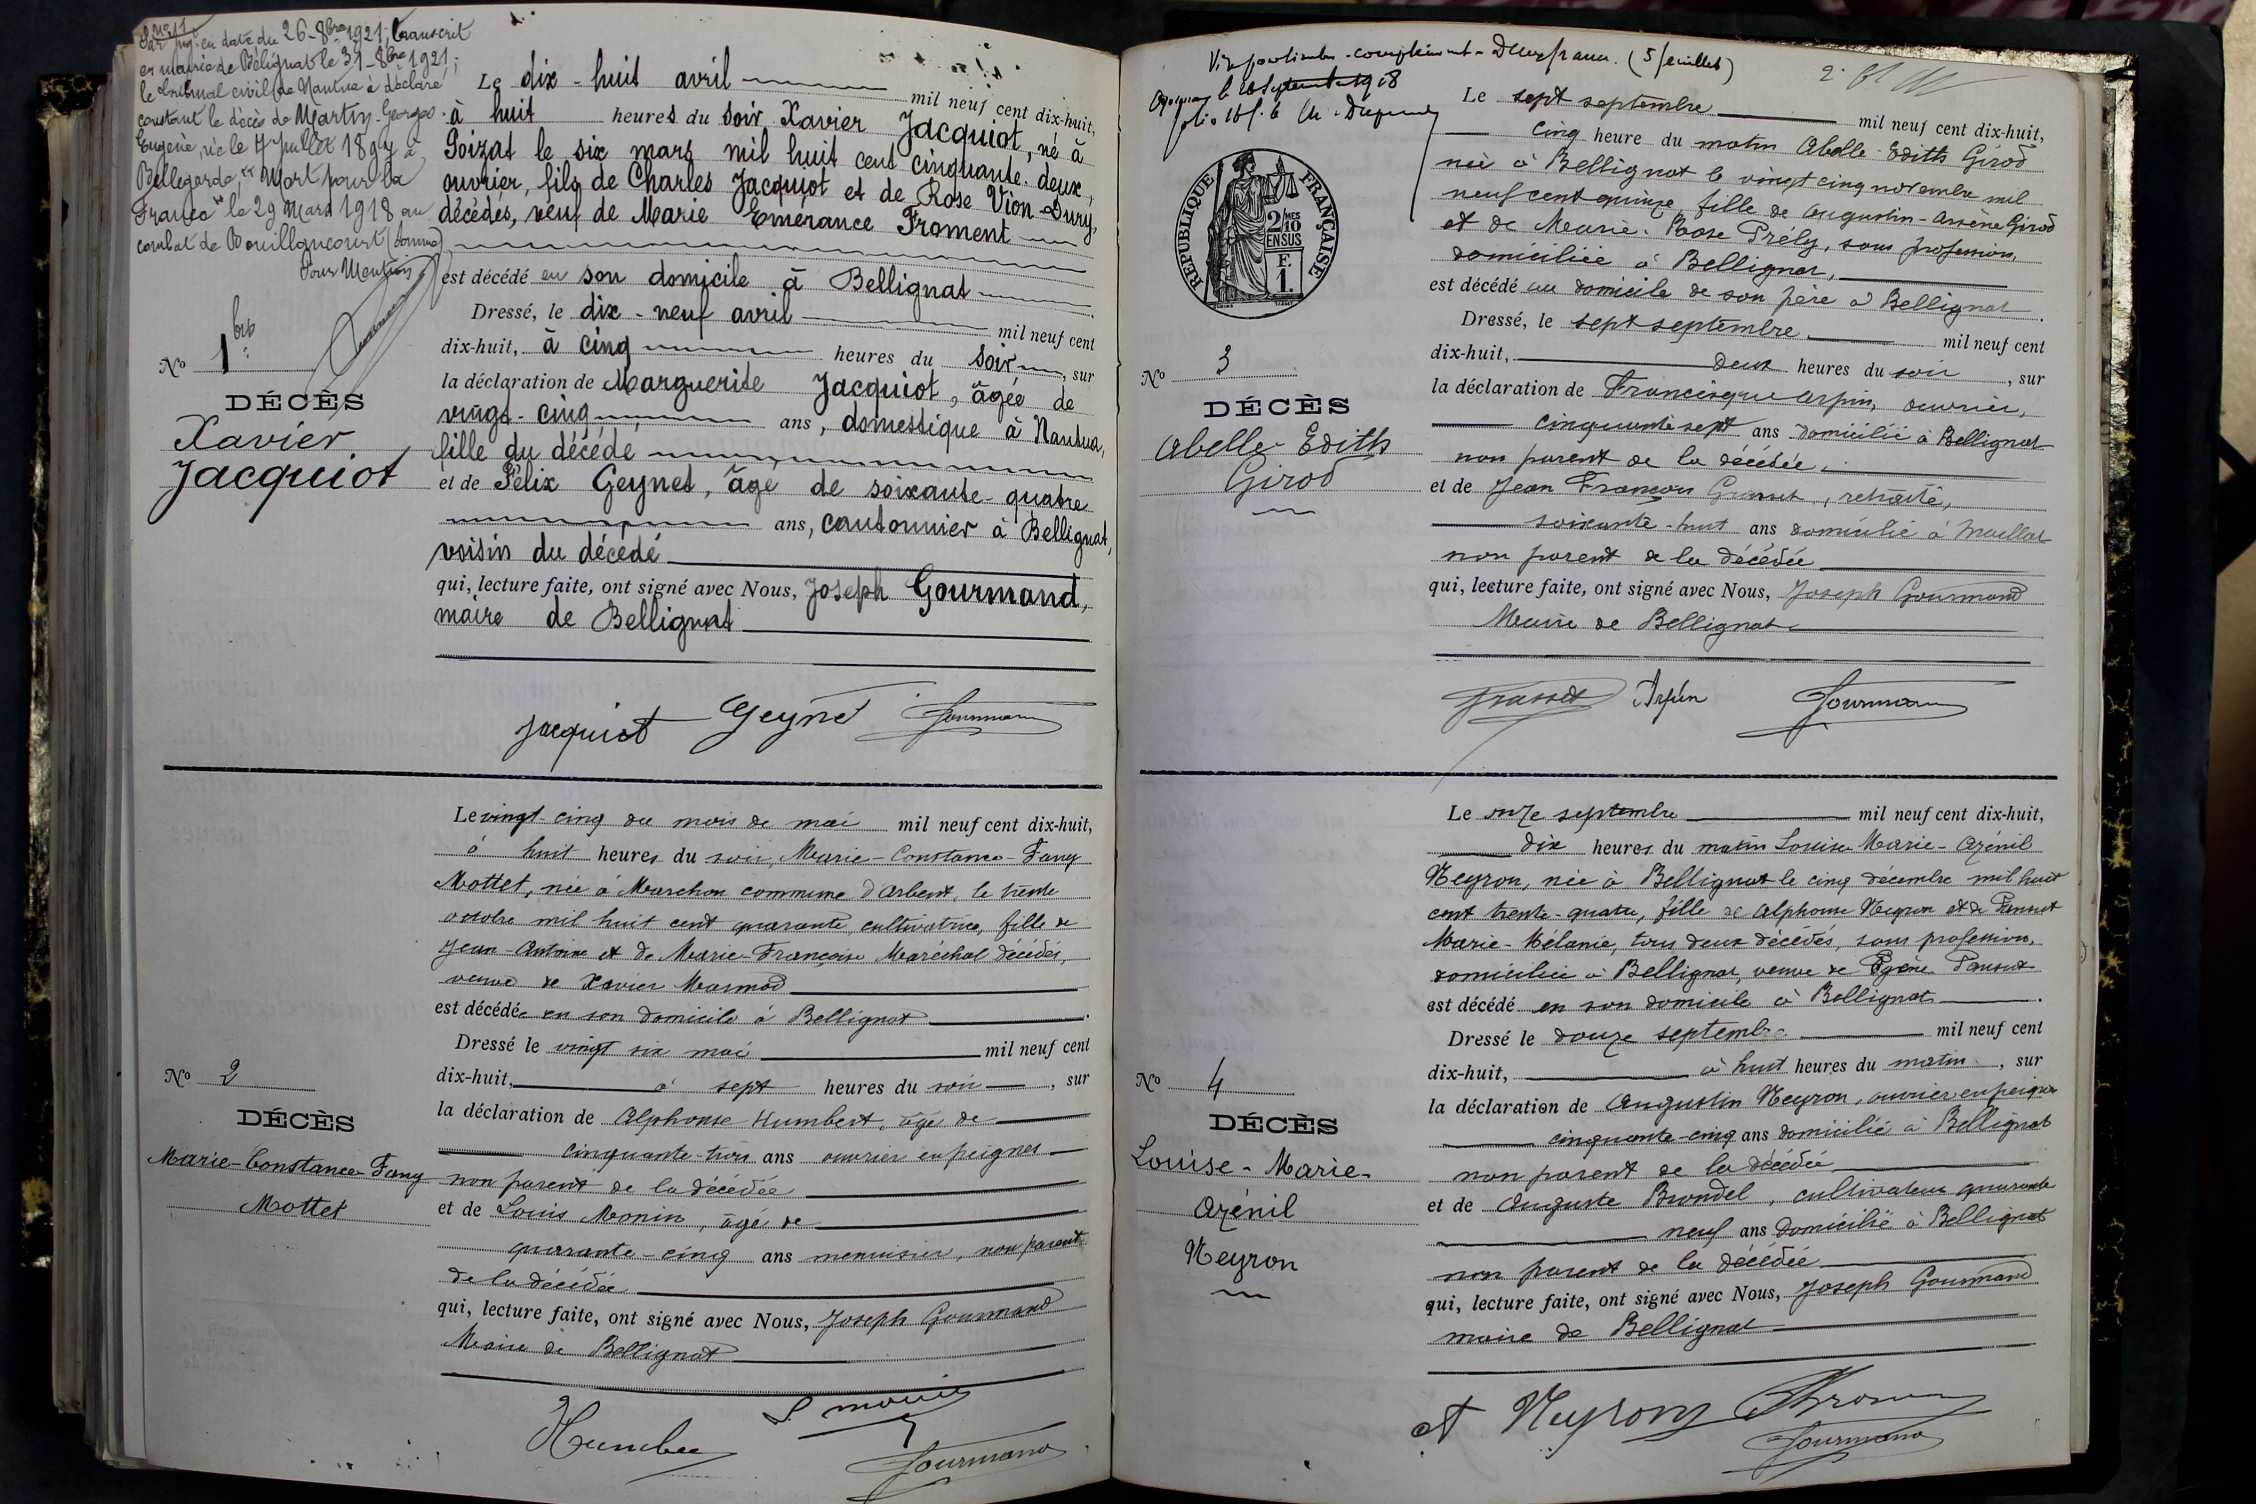 en date du 26-8bre 1921, transcrit
en mairie de Bélignat le 31-8bre 1921,
le tribunal civil de Nantua a déclaré
constant le décès de Martin Georges
Eugène, né le 7 Juillet 18 à
Bellegarde, "Mort pour la
France" le 29 Mars 1918 au
combat de Bouillancourt (Somme)
Pour Mention
Le dix-huit avril mil neuf cent dix-huit,
à huit heures du soir Xavier Jacquiot, né à
Poizat le six mars mil huit cent cinquante-deux,
ouvrier, fils de Charles Jacquiot et de Rose Vion-Dury,
décédés, veuf de Marie Emérance Froment
est décédé en son domicile à Bellignat
Dressé, le dix-neuf avril mil neuf cent
dix-huit, à cinq heures du soir, sur
la déclaration de Marguerite Jacquiot, âgée de
vingt-cinq ans, domestique à Nantua,
fille du décédé
et de Félix Geynet, âgé de soixante-quatre
ans, cantonnier à Bellignat,
voisin du décédé
qui, lecture faite, ont signé avec Nous, Joseph Gourmand,
maire de Bellignat
No 1 bis
DÉCÈS
Xavier
Jacquiot
Jacquiot Geynet Gourmand
Le vingt-cinq du mois de mai mil neuf cent dix-huit,
à huit heures du soir, Marie-Constance-Fany
Mottet, née à Marchon commune d'Arbent, le trente
octobre mil huit cent quarante, cultivatrice, fille de
Jean-Antoine et de Marie-Françoise Maréchal décédés,
veuve de Xavier Marmod
est décédée en son domicile à Bellignat
Dressé le vingt six mai mil neuf cent
dix-huit, à sept heures du soir, sur
la déclaration de Alphonse Humbert, âgé de
cinquante-trois ans ouvrier en peignes
non parent de la décédée
et de Louis Monin, âgé de
quarante-cinq ans menuisier, non parent
de la décédée
qui, lecture faite, ont signé avec Nous, Joseph Gourmand
Maire de Bellignat
No 2
DÉCÈS
Marie-Constance-Fany
Mottet
L Monin
Gourmand
Vu pour timbre-complément-Deux francs. (5 feuillets)
2
RÉPUBLIQUE FRANÇAISE
2/10MES
EN SUS
F.
1.
Le sept septembre mil neuf cent dix-huit,
cinq heure du matin Abelle-Edith Girod
née à Bellignat le vingt cinq novembre mil
neuf cent quinze, fille de Augustin-Arsène Girod
et de Marie-Rose Prély, sans profession,
domiciliée à Bellignat,
est décédé au domicile de son père à Bellignat.
Dressé, le sept septembre mil neuf cent
dix-huit, deux heures du soir, sur
la déclaration de Francisque Arpin, ouvrier,
cinquante sept ans domicilié à Bellignat
non parent de la décédée,
et de Jean François Grasset, retraité,
soixante-huit ans domicilié à Maillat
non parent de la décédée
qui, lecture faite, ont signé avec Nous, Joseph Gourmand
Maire de Bellignat
No 3
DÉCÈS
Abelle-Edith
Girod
Grasset Arpin Gourmand
Le onze septembre mil neuf cent dix-huit,
dix heures du matin Louise-Marie-Azénil
Neyron, née à Bellignat le cinq décembre mil huit
cent trente-quatre, fille de Alphonse Neyron et de
Marie-Mélanie, tous deux décédés, sans profession,
domiciliée à Bellignat, veuve de
est décédé en son domicile à Bellignat.
Dressé le douze septembre mil neuf cent
dix-huit, à huit heures du matin, sur
la déclaration de Augustin Neyron, ouvrier en peignes
cinquante-cinq ans domicilié à Bellignat
non parent de la décédée
et de Auguste Brondel, cultivateur quarante
neuf ans domicilié à Bellignat
non parent de la décédée
qui, lecture faite, ont signé avec Nous, Joseph Gourmand
maire de Bellignat
No 4
DÉCÈS
Louise-Marie-
Azénil
Neyron
A Neyron
Gourmand